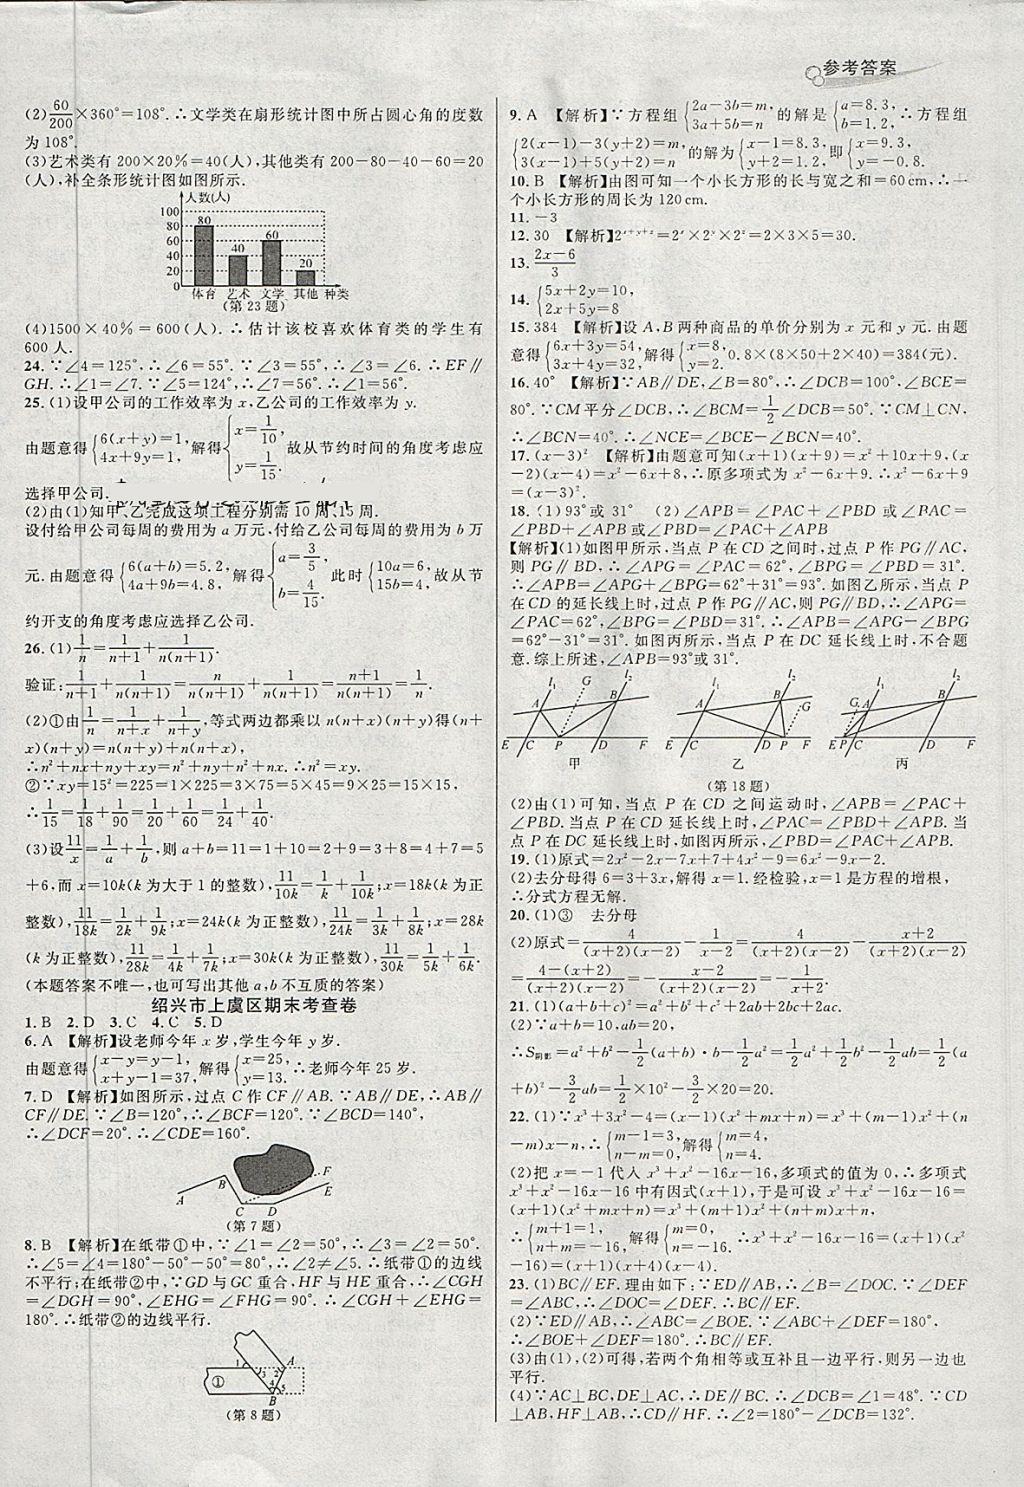 参考答案
(2)60/200×360°=108°.∴文学类在扇形统计图中所占圆心角的度数
为108°.
(3)艺术类有200×20%=40(人),其他类有200-80-40-60=20
(人),补全条形统计图如图所示.
人数(人)
100
80
60
40
20
0
80
40
60
20
体育 艺术 文学 其他 种类
(第23题)
(4)1500×40%=600(人).∴估计该校喜欢体育类的学生有
600人.
24.∵∠4=125°,∴∠6=55°.∵∠3=55°,∴∠3=∠6.∴EF∥
GH.∴∠1=∠7.∵∠5=124°,∴∠7=56°.∴∠1=56°.
25.(1)设甲公司的工作效率为x,乙公司的工作效率为y.
由题意得{6(x+y)=1, 4x+9y=1, 解得{x=1/10, y=1/15. 故从节约时间的角度考虑应
选择甲公司.
(2)由(1)知甲、乙完成这项工程分别需10周、15周.
设付给甲公司每周的费用为a万元,付给乙公司每周的费用为b万
元.由题意得{6(a+b)=5.2, 4a+9b=4.8, 解得{a=3/5, b=4/15. 此时{10a=6, 15b=4, 故从节
约开支的角度考虑应选择乙公司.
26.(1)1/n=1/(n+1)+1/(n(n+1)).
验证:1/(n+1)+1/(n(n+1))=n/(n(n+1))+1/(n(n+1))=(n+1)/(n(n+1))=1/n.
(2)①由1/n=1/(n+x)+1/(n+y),等式两边都乘以n(n+x)(n+y)得(n+
x)(n+y)=n(n+y)+n(n+x),
∴n²+nx+ny+xy=n²+ny+n²+nx,∴xy=n².
②∵xy=15²=225=1×225=3×75=5×45=9×25=15×15,
∴1/15=1/18+1/90=1/20+1/60=1/24+1/40=1/30+1/30.
(3)设11/x=1/a+1/b,则a+b=11=1+10=2+9=3+8=4+7=5
+6,而x=10k(k为大于1的整数),11/10k=1/k+1/10k;x=18k(k为正
整数),11/18k=1/2k+1/9k;x=24k(k为正整数),11/24k=1/3k+1/8k;x=28k
(k为正整数),11/28k=1/4k+1/7k;x=30k(k为正整数),11/30k=1/5k+1/6k.
(本题答案不唯一,也可写出其他a,b不互质的答案)
绍兴市上虞区期末考查卷
1.B 2.D 3.C 4.C 5.D
6.A 【解析】设老师今年x岁,学生今年y岁.
由题意得{x-y=y-1, x+y-1=37, 解得{x=25, y=13. ∴老师今年25岁.
7.D 【解析】如图所示,过点C作CF∥AB.∵AB∥DE,∴AB∥
CF∥DE.∵∠B=120°,∴∠BCF=120°.∵∠BCD=140°,
∴∠DCF=20°.∴∠CDE=160°.
A B C D E F
(第7题)
8.B 【解析】在纸带①中,∵∠1=∠2=50°,∴∠3=∠2=50°.
∴∠5=∠4=180°-50°-50°=80°.∴∠2≠∠5.∴纸带①的边线
不平行;在纸带②中,∵GD与GC重合,HF与HE重合,∴∠CGH
=∠DGH=90°,∠EHG=∠FHG=90°.∴∠CGH+∠EHG=
180°.∴纸带②的边线平行.
① 1 2 3 4 5 A B
(第8题)
9.A 【解析】∵方程组{2a-3b=m, 3a+5b=n 的解是{a=8.3, b=1.2, ∴方程组
{2(x-1)-3(y+2)=m, 3(x-1)+5(y+2)=n 的解为{x-1=8.3, y+2=1.2, 即{x=9.3, y=-0.8.
10.B 【解析】由图可知一个小长方形的长与宽之和=60cm,∴一
个小长方形的周长为120cm.
11.-3
12.30 【解析】2^(x+y+z)=2^x×2^y×2^z=2×3×5=30.
13.(2x-6)/3
14.{5x+2y=10, 2x+5y=8
15.384 【解析】设A,B两种商品的单价分别为x元和y元.由题
意得{6x+3y=54, 3x+4y=32, 解得{x=8, y=2. 0.8×(8×50+2×40)=384(元).
16.40° 【解析】∵AB∥DE,∠B=80°,∴∠DCB=100°,∠BCE=
80°.∵CM平分∠DCB,∴∠BCM=1/2∠DCB=50°.∵CM⊥CN,
∴∠BCN=40°.∴∠NCE=∠BCE-∠BCN=40°.
17.(x-3)² 【解析】由题意可知(x+1)(x+9)=x²+10x+9,(x-
2)(x-4)=x²-6x+8,∴原多项式为x²-6x+9.∴x²-6x+9
=(x-3)².
18.(1)93°或31° (2)∠APB=∠PAC+∠PBD或∠PAC=
∠PBD+∠APB或∠PBD=∠PAC+∠APB
【解析】(1)如图甲所示,当点P在CD之间时,过点P作PG∥AC,
则PG∥BD,∴∠APG=∠PAC=62°,∠BPG=∠PBD=31°.
∴∠APB=∠APG+∠BPG=62°+31°=93°.如图乙所示,当点P
在CD的延长线上时,过点P作PG∥AC,则PG∥BD,∴∠APG=
∠PAC=62°,∠BPG=∠PBD=31°.∴∠APB=∠APG-∠BPG=
62°-31°=31°.如图丙所示,当点P在DC延长线上时,不合题
意.综上所述,∠APB=93°或31°.
l₁ G l₂ A B E C P D F 甲
l₁ l₂ A B G E C D P F 乙
l₁ l₂ G A B E P C D F 丙
(第18题)
(2)由(1)可知,当点P在CD之间运动时,∠APB=∠PAC+
∠PBD.当点P在CD延长线上时,∠PAC=∠PBD+∠APB.当
点P在DC延长线上时,如图丙所示,∠PBD=∠PAC+∠APB.
19.(1)原式=2x²-2x-7x+7+4x²-7=6x²-9x.
(2)去分母得6=3+3x,解得x=1.经检验,x=1是方程的增根,
∴分式方程无解.
20.(1)③ 去分母
(2)原式=4/((x+2)(x-2))-1/(x-2)=4/((x+2)(x-2))-(x+2)/((x+2)(x-2))
=(4-(x+2))/((x+2)(x-2))=-(x-2)/((x+2)(x-2))=-1/(x+2).
21.(1)(a+b+c)²=a²+b²+c²+2ab+2bc+2ac.
(2)∵a+b=10,ab=20,
∴S阴影=a²+b²-1/2(a+b)·b-1/2a²=1/2a²+1/2b²-1/2ab=1/2(a
+b)²-3/2ab=1/2×10²-3/2×20=20.
22.(1)∵x³+3x²-4=(x-1)(x²+mx+n)=x³+(m-1)x²+(n
-m)x-n,∴{m-1=3, n-m=0, 解得{m=4, n=4.
(2)把x=-1代入x³+x²-16x-16,多项式的值为0,∴多项式
x³+x²-16x-16中有因式(x+1),于是可设x³+x²-16x-16=
(x+1)(x²+mx+n)=x³+(m+1)x²+(n+m)x+n,
∴{m+1=1, n+m=-16, 解得{m=0, n=-16. ∴x³+x²-16x-16=(x+1)(x²
-16)=(x+1)(x+4)(x-4).
23.(1)BC∥EF.理由如下:∵ED∥AB,∴∠B=∠DOC.∵∠DEF
=∠B,∴∠DOC=∠DEF.∴BC∥EF.
(2)∵ED∥AB,∴∠ABC=∠BOE.∵∠ABC+∠DEF=180°,
∴∠BOE+∠DEF=180°.∴BC∥EF.
(3)由(1),(2)可得,若两个角相等或互补且一边平行,则另一边也
平行.
(4)∵AC⊥BC,DE⊥AC,∴DE∥BC.∴∠DCB=∠1=48°.∵CD
⊥AB,HF⊥AB,∴CD∥HF.∴∠2=180°-∠DCB=132°.